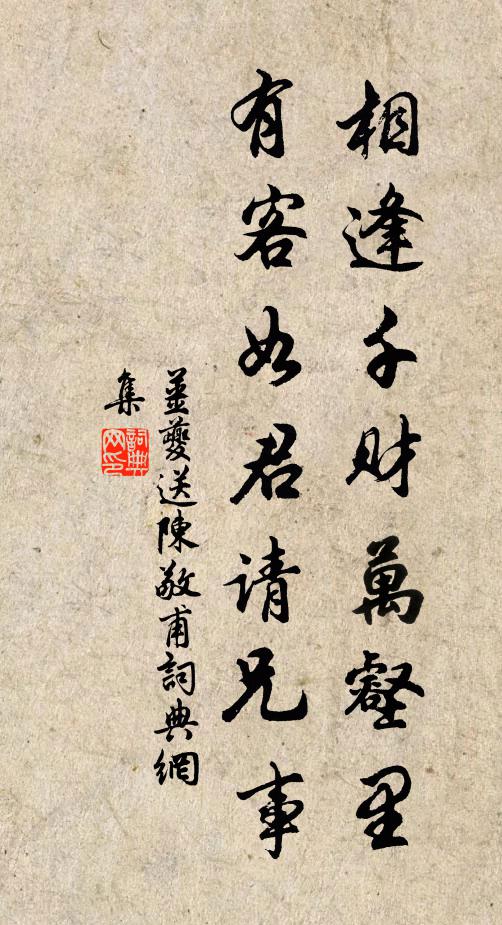 相逢千财萬壑里
有客如君请兄事
姜夔送陳敬甫詞典網
集
詞典网印